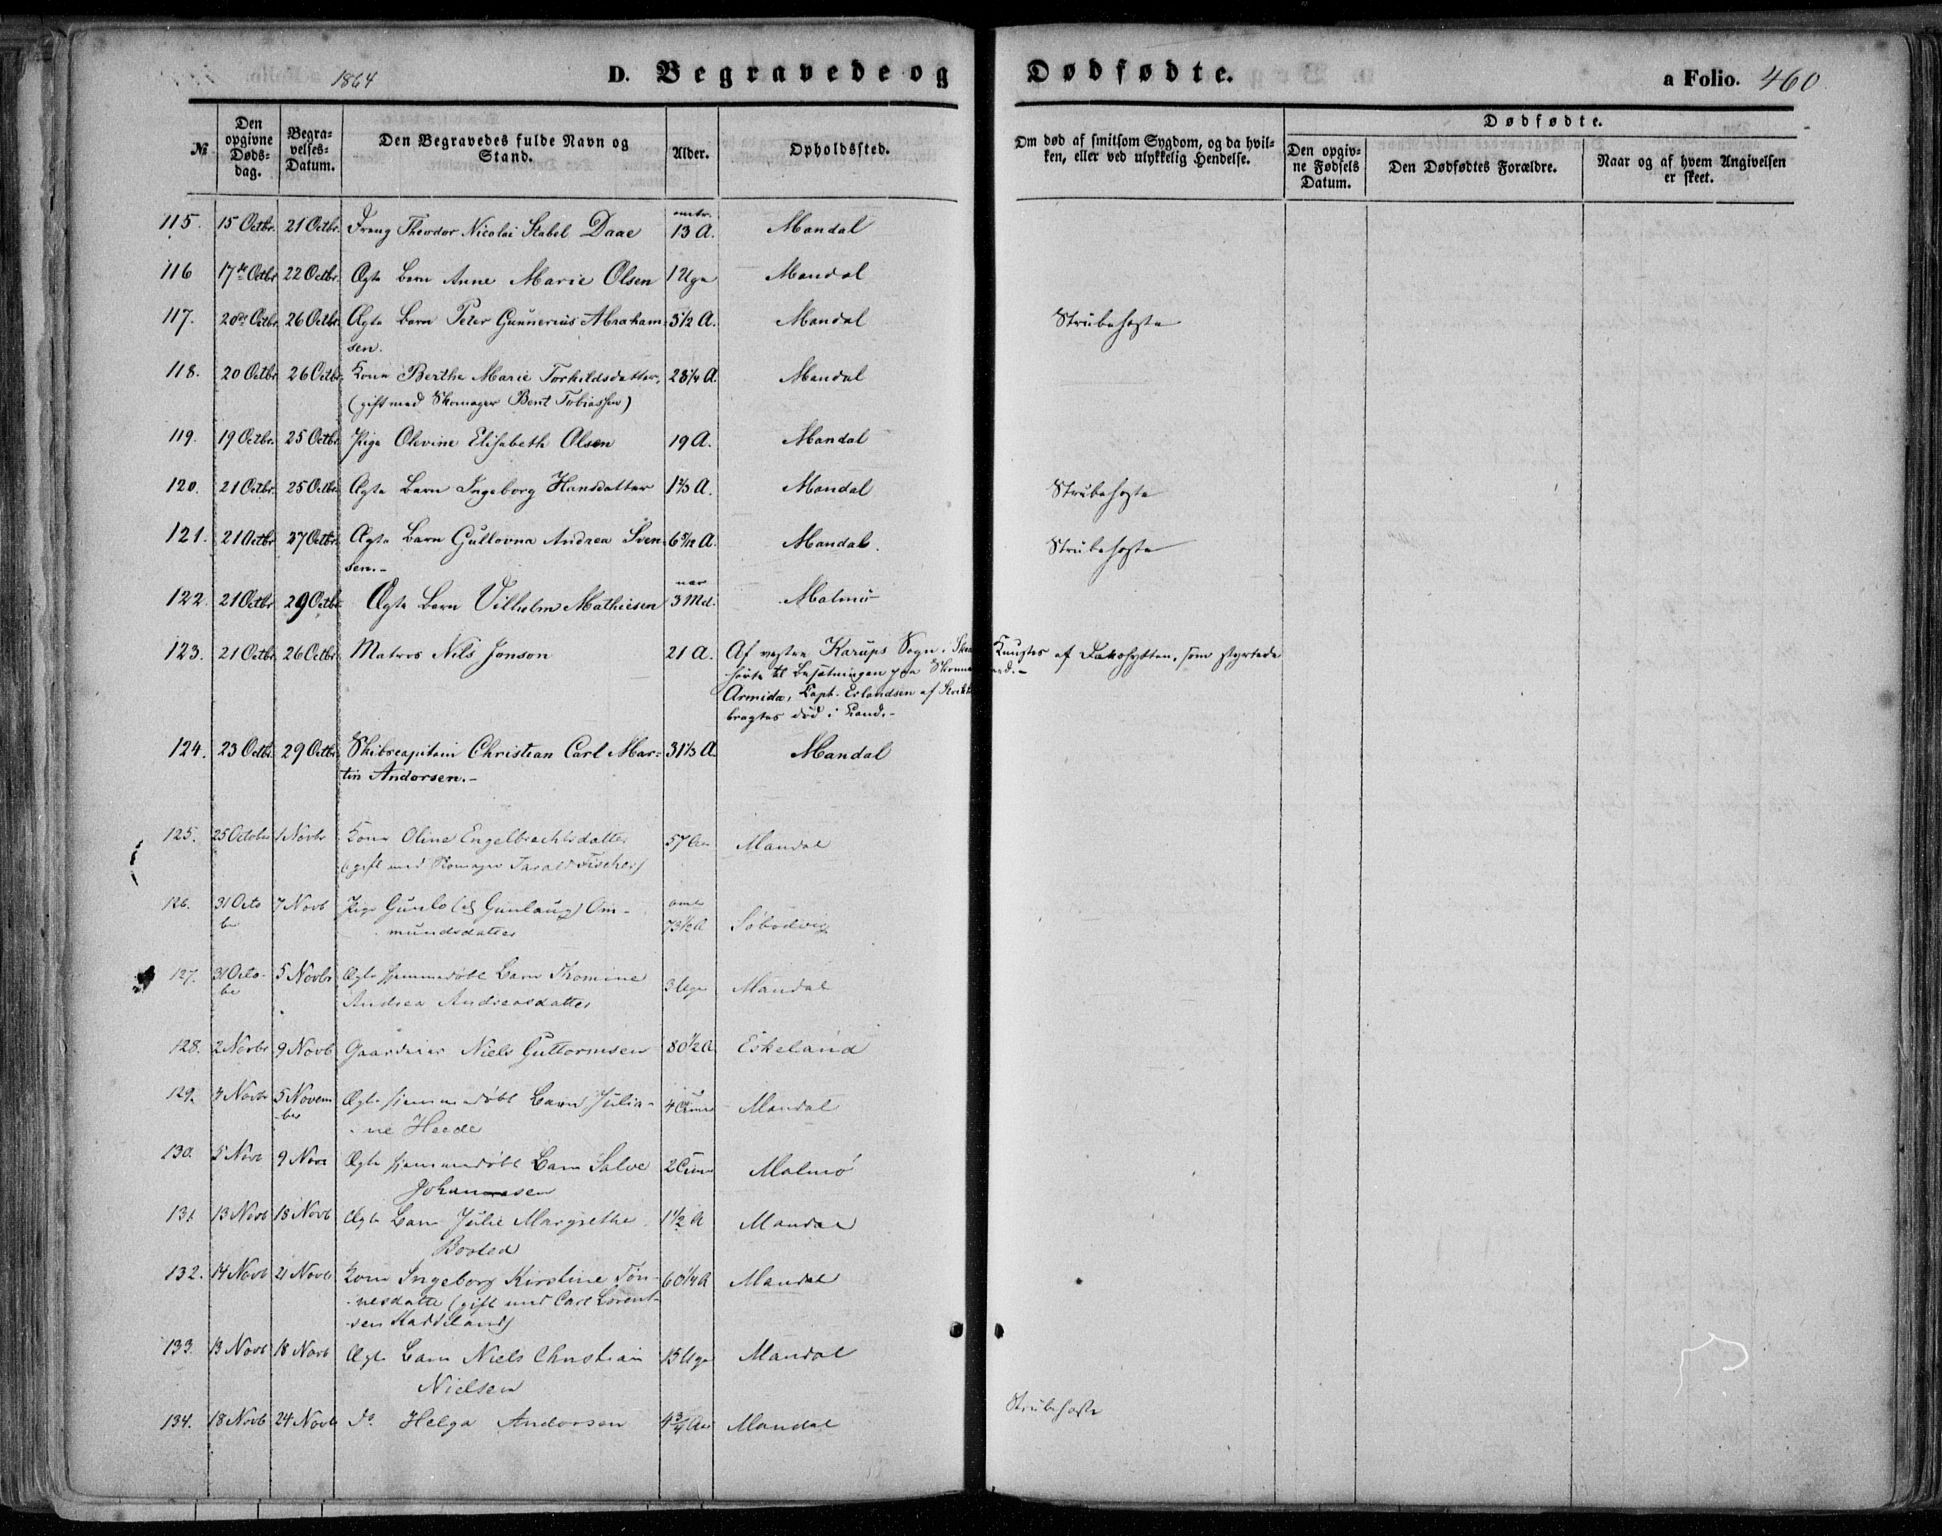 1864 D. Begravede og Dødfødte. a Folio. 460.
№ Den opgivne Døds-dag. Begra-velses-Datum. Den Begravedes fulde Navn og Stand. Alder. Opholdssted. Om død af smitsom Sygdom, og da hvil-ken, eller ved ulykkelig Hendelse. Dødfødte. Den opgiv-ne Fødsels Datum. Den Dødfødtes Forældre. Naar og af hvem Angivelsen er skeet.
115. 15 Octbr. 21 Octbr. Theodor Nicolai Stabel Daae omtr. 13 A. Mandal
116 17de Octbr 22 Octbr. Ægte Barn Anne Marie Olsen 1 Uge Mandal
117. 20de Octbr 26 Octbr. Ægte Barn Peter Gunnerius Abraham- 5½ A. Mandal Strubehoste
sen.
118. 20 Octbr. 26 Octbr. Kone Berthe Marie Torkildsdatter, 28¼ A. Mandal
(gift med Skomager Bent Tobiassen)
119. 19 Octbr. 25 Octbr. Pige Olevine Elisabeth Olsen 19 A. Mandal
120. 21 Octbr. 25 Octbr. Ægte Barn Ingeborg Hansdatter A. Mandal Strubehoste
121. 21 Octbr 27 Octbr. Ægte Barn Gullovna Andrea Sven- A. Mandal. Strubehoste
sen.-
122. 21 Octbr. 29 Octbr. Ægte Barn Vilhelm Mathiesen 3 Md. Malmø
123. 21 Octbr 26 Octbr. Matros Nils Jonson 21 A. Af vestre Karups Sogn i Knustes af Dækshytten, som styrtede
hørte til Besætningen paa ned.-
Armida, Capt. Erlandsen af
bragtes død i Land.-
124. 23 Octbr. 29 Octbr. Skibscapitain Christian Carl Mar- 31⅓ A Mandal
tin Andorsen.-
125. 25 October 1 Novbr Kone Oline Engelbrechtsdatter 57 Aar Mandal
(gift med Skomager Tarald Fischer)
126. 31 Octo 7 Novb Pige Gunlo (el Gunlaug) Om- omt
ber mundsdatter 73½ A
127. 31 Octo- 5 Novbr Ægte hjemmedøbt Barn Thomine 3 Uger Mandal
ber Andrea Andreasdatter
128. 2 Novbr 9 Novb Gaardeier Niels Guttormsen 80½ A Eskeland
129. 4 Novbr 5 Novem Ægte hjemmedøbt Barn Julia- Mandal
ber -ne Heede
130. 5 Novb 9 Novb Ægte hjemmedøbt Barn Salve Malmø
Johannesen
131. 13 Novb 18 Novb Ægte Barn Julie Margrethe 1½ A Mandal
Booted
132. 14 Novb 21 Novb Kone Ingeborg Kirstine Tøn- 60¼ A Mandal
-nesdatter (gift med Carl Lorent-
-sen Haddeland)
133. 13 Novb 18 Novb Ægte Barn Niels Christian 15 Uger Mandal
Nielsen
134. 18 Novb 24 Novb Do Helga Andorsen 4¾ Aar Mandal Strubehoste